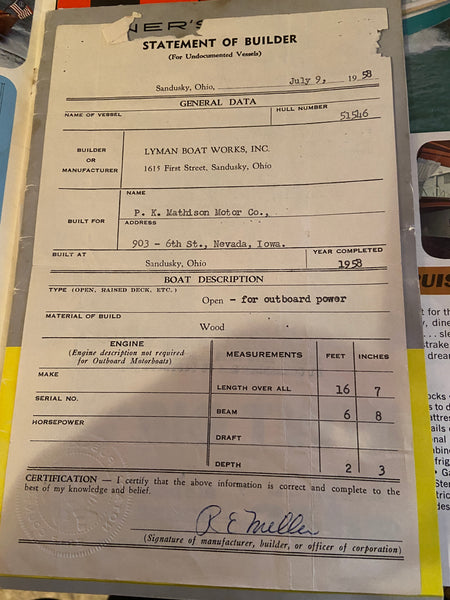 NER'S
STATEMENT OF BUILDER
(For Undocumented Vessels)
Sandusky, Ohio, July 9, 1958
GENERAL DATA
NAME OF VESSEL
HULL NUMBER
51546
BUILDER
OR
MANUFACTURER
LYMAN BOAT WORKS, INC.
1615 First Street, Sandusky, Ohio
BUILT FOR
NAME
P. K. Mathison Motor Co.,
ADDRESS
903 - 6th St., Nevada, Iowa.
BUILT AT
Sandusky, Ohio
YEAR COMPLETED
1958
BOAT DESCRIPTION
TYPE (OPEN, RAISED DECK, ETC.)
Open - for outboard power
MATERIAL OF BUILD
Wood
ENGINE
(Engine description not required
for Outboard Motorboats)
MEASUREMENTS FEET INCHES
MAKE
LENGTH OVER ALL 16 7
SERIAL NO.
BEAM 6 8
HORSEPOWER
DRAFT
DEPTH 2 3
CERTIFICATION — I certify that the above information is correct and complete to the
best of my knowledge and belief.
(Signature of manufacturer, builder, or officer of corporation)